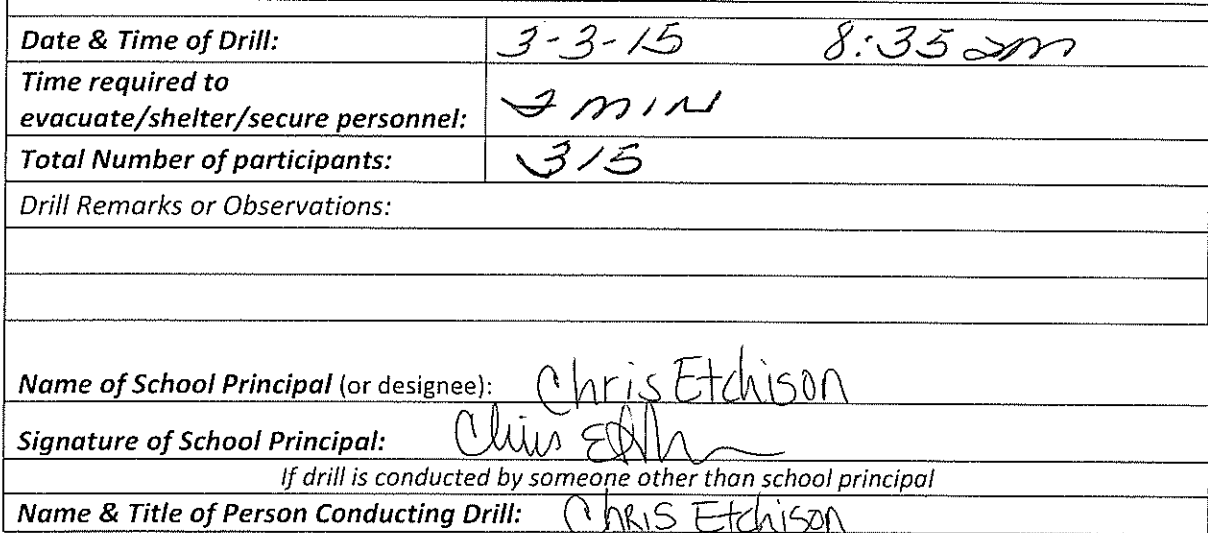 Date & Time of Drill: 3-3-15 8:35 am
Time required to
evacuate/shelter/secure personnel: 2 MIN
Total Number of participants: 315
Drill Remarks or Observations:
Name of School Principal (or designee): Chris Etchison
Signature of School Principal: Chris
If drill is conducted by someone other than school principal
Name & Title of Person Conducting Drill: ChRIS Etchison